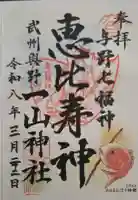 奉拝
与野七福神
恵比寿神
武州與野
一山神社
令和八年三月二十二日